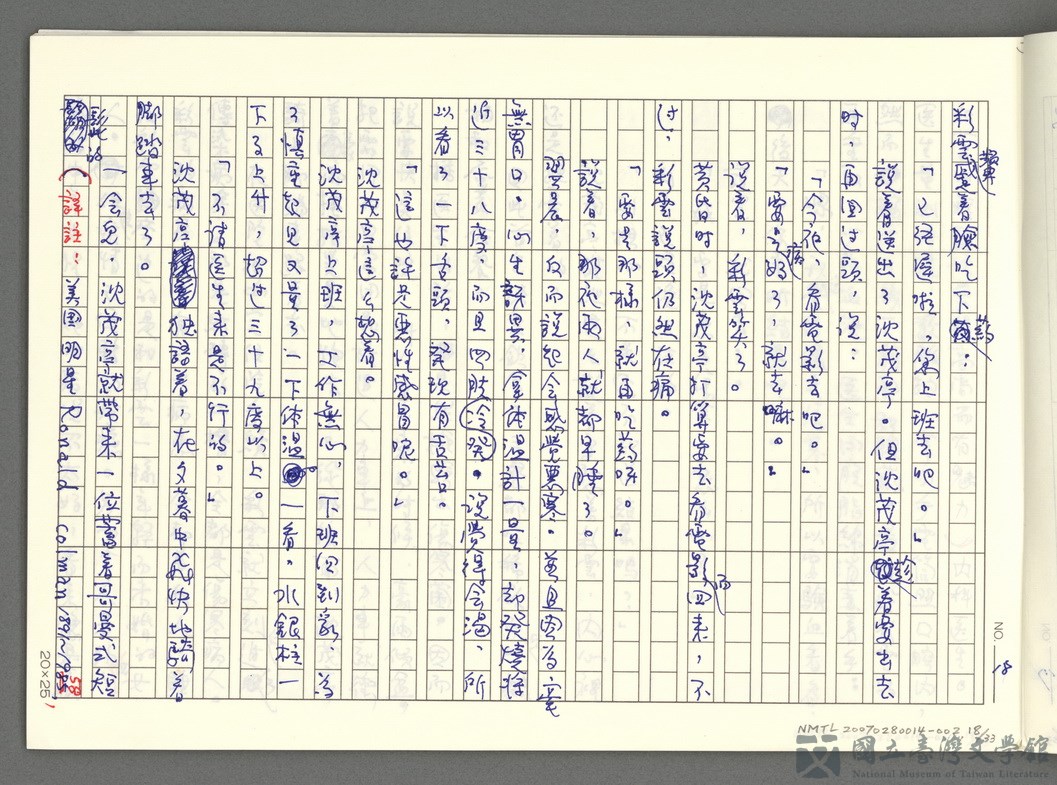 彩雲顰著臉吃下藥：
「已經痊啦，您上班去吧。」
說着送出了沈茂亭。但沈茂亭着要出去
時，再回过頭，说：
「今夜，看電影去吧。」
「要是病好了，就去嘛。」
说着，彩雲笑了。
黃昏时，沈茂亭打算要去看電影而回来，不
过，彩雲説頭仍然在痛。
「要是那様，就再吃药呀。」
説着，那夜兩人就都早睡了。
翌晨，反而說紀会感覺悪寒。並且因為毫
無胃口。心生訝異，拿体温計一量，却発燒将
近三十八度，而且四肢冷癸。说覺得会渴，所
以看了一下舌頭，発现有舌苔。
「這也許是悪性感冒呢。」
沈茂亭這么想着。
沈茂亭上班，工作無心，下班回到家，為
了慎重起見又量了一下体温一看，水銀柱一
下子上升，超过三十九度以上。
「不请医生来是不行的。」
沈茂亭独語着，在夕暮中飛快地騎着
脚踏車去了。
一会兒，沈茂亭就帶来一位蓄着哥曼式短
彭此的
（詳註：美国明星Ronald Colman 1891~1958）
NO. 18
20×25
NMTL 20070280014-002 18/33
國立臺灣文學館
National Museum of Taiwan Literature